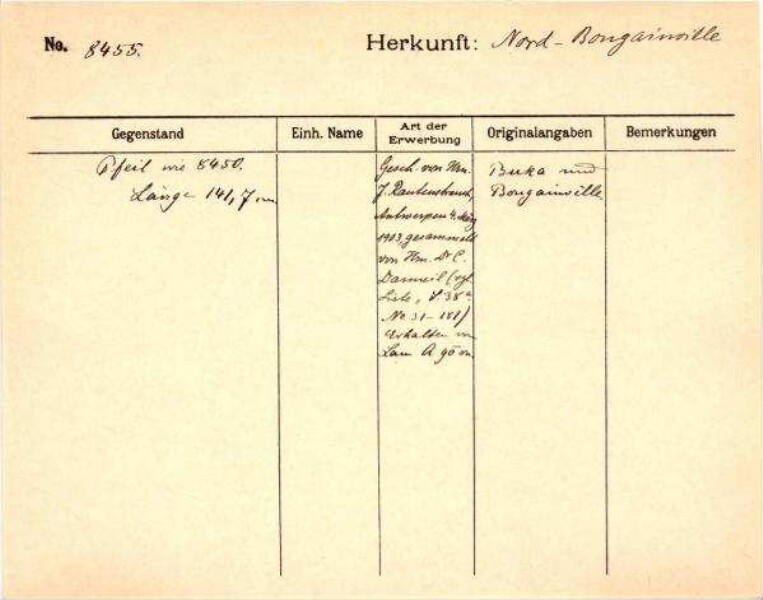 No. 8455.
Herkunft: Nord-Bougainville
Gegenstand
Einh. Name
Art der Erwerbung
Originalangaben
Bemerkungen
Pfeil wie 8450.
Länge 141,7 cm
Gesch. von Hrn.
J. Rautenstrauch,
Antwerpen 4. März
1903, gesammelt
von Hrn. Dr C.
(vgl.
Liste, S. 38a
No 31-181)
Erhalten von
Buka und
Bougainville